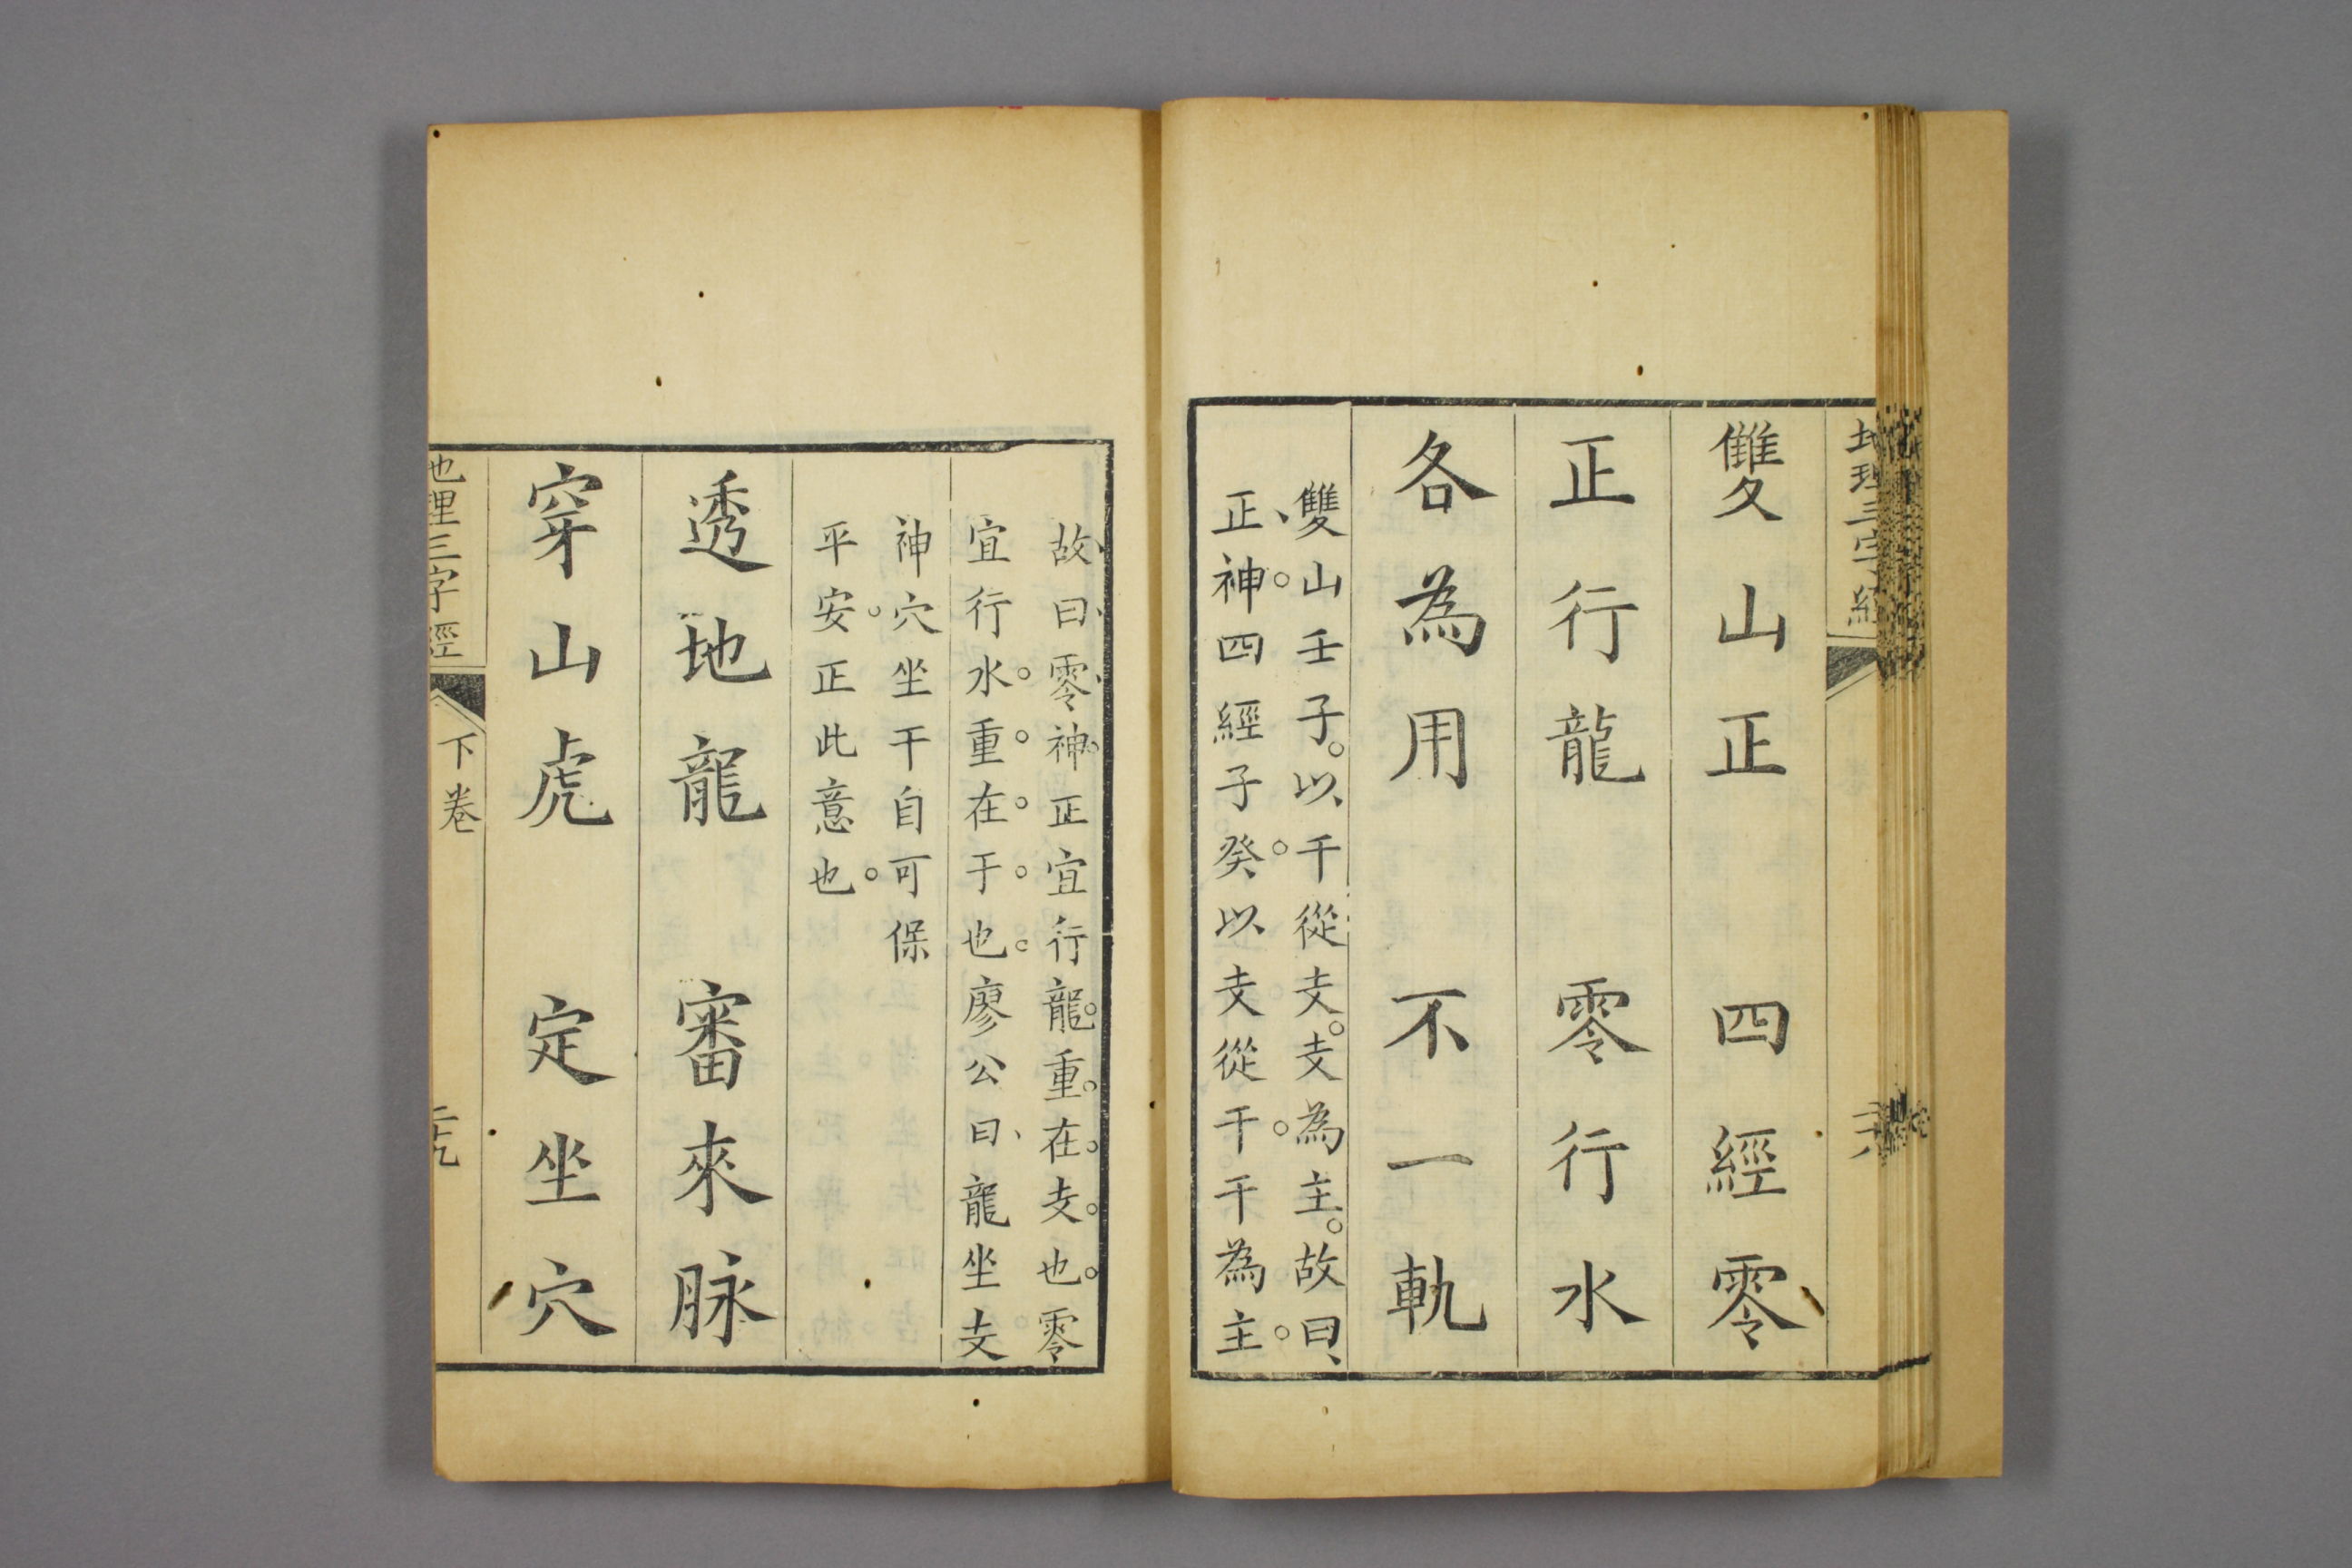 地理三字經
雙山正 四經零
正行龍 零行水
各為用 不一軌
雙山壬子。以干從支。支為主。故曰、
正神。四經子癸。以支從干。干為主。
故曰零神。正宜行龍。重。在。支。也。零
宜行水。重。在。于。也。廖公曰、龍坐支
神穴坐干自可保
平安。正此意也。
透地龍 審來脉
穿山虎 定坐穴
地理三字經
下卷